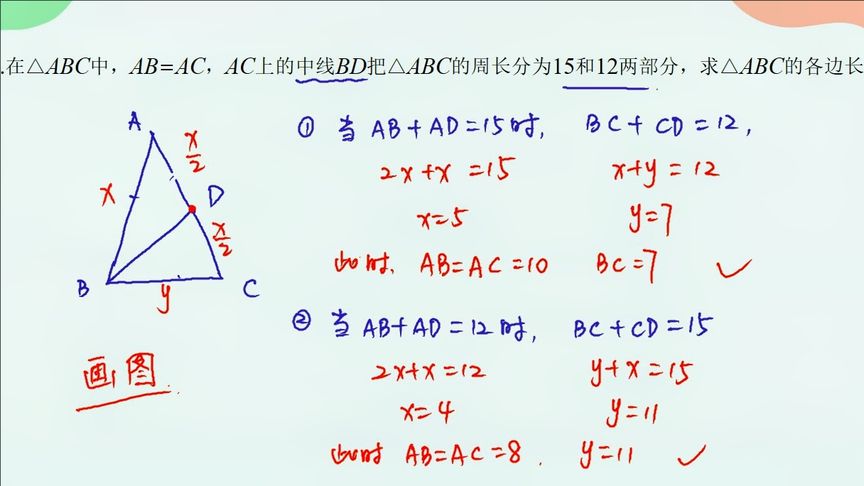 .在△ABC中，AB=AC，AC上的中线BD把△ABC的周长分为15和12两部分，求△ABC的各边长
A
x/2
x
D
x/2
B
y
C
画图
① 当 AB+AD=15时， BC+CD=12，
2x+x=15 x+y=12
x=5 y=7
此时， AB=AC=10 BC=7 ✓
② 当 AB+AD=12时， BC+CD=15
2x+x=12 y+x=15
x=4 y=11
此时 AB=AC=8． y=11 ✓